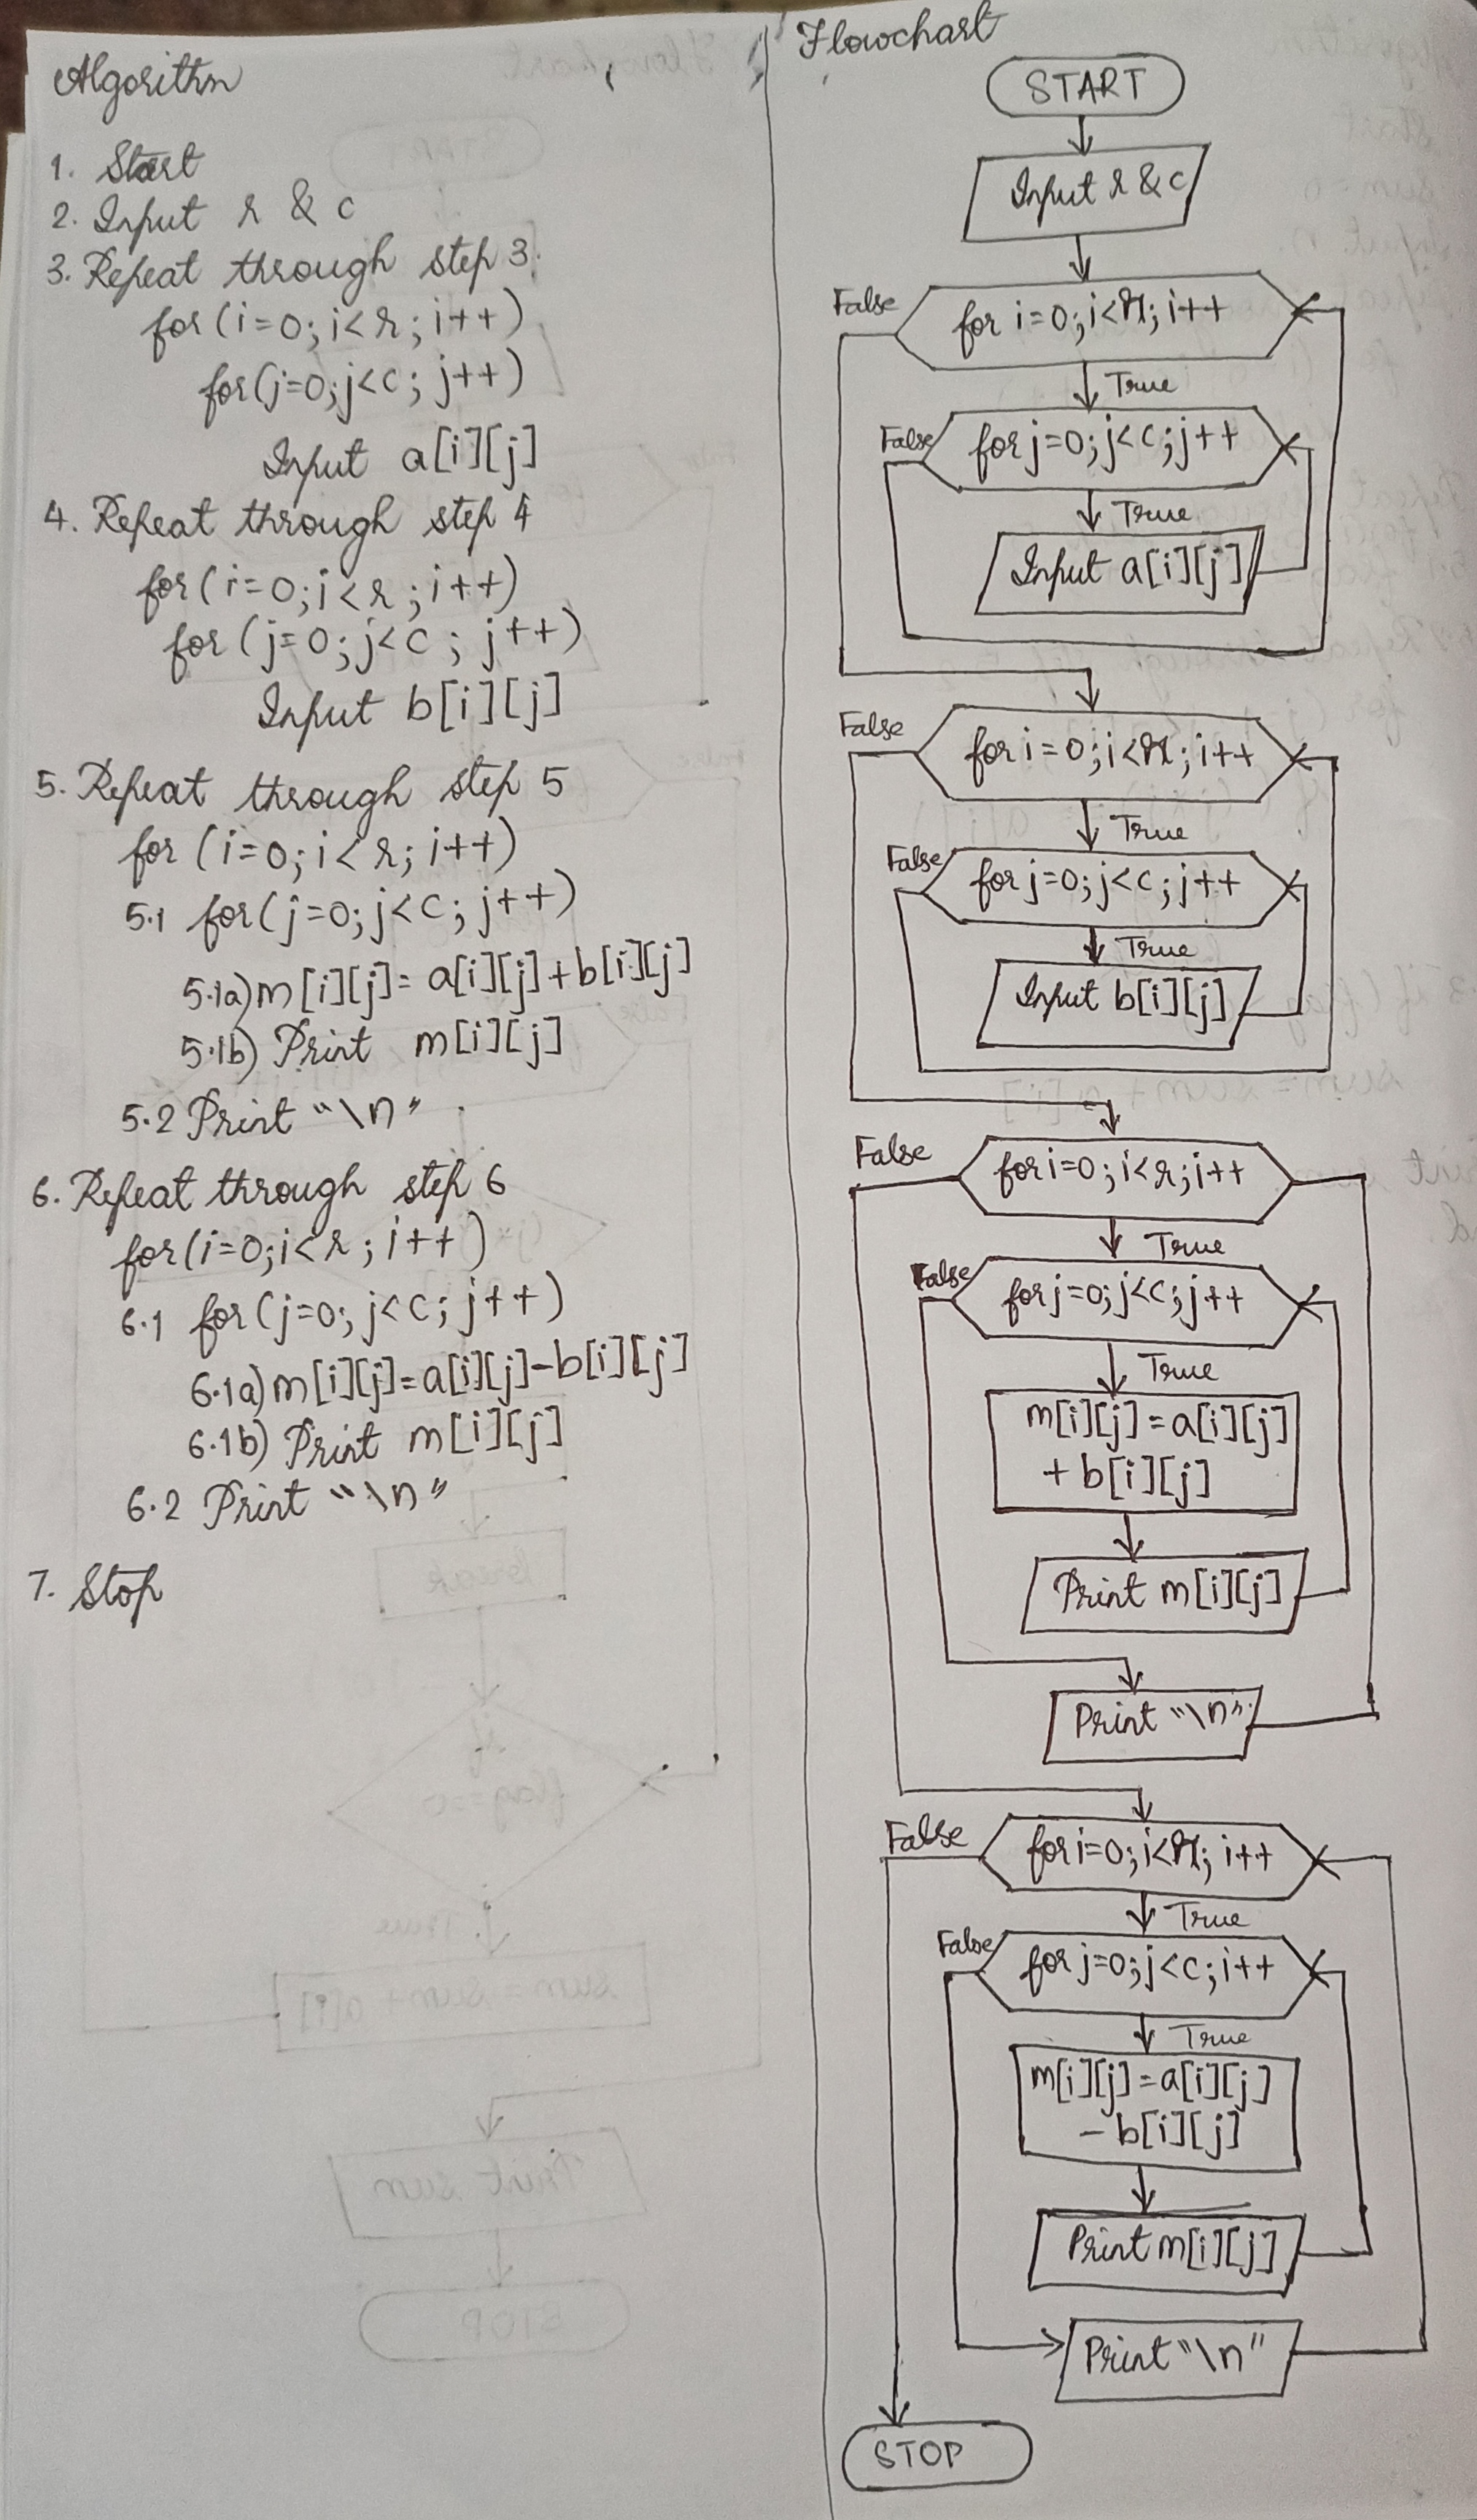 Algorithm
1. Start
2. Input r & c
3. Repeat through step 3
for(i=0;i<r;i++)
for(j=0;j<c;j++)
Input a[i][j]
4. Repeat through step 4
for(i=0;i<r;i++)
for(j=0;j<c;j++)
Input b[i][j]
5. Repeat through step 5
for (i=0;i<r;i++)
5.1 for(j=0;j<c;j++)
5.1a) m[i][j]=a[i][j]+b[i][j]
5.1b) Print m[i][j]
5.2 Print "\n"
6. Repeat through step 6
for(i=0;i<r;i++)
6.1 for(j=0;j<c;j++)
6.1a) m[i][j]=a[i][j]-b[i][j]
6.1b) Print m[i][j]
6.2 Print "\n"
7. Stop
Flowchart
START
Input r & c
False
for i=0;i<r;i++
True
False
for j=0;j<c;j++
True
Input a[i][j]
False
for i=0;i<r;i++
True
False
for j=0;j<c;j++
True
Input b[i][j]
False
for i=0;i<r;i++
True
False
for j=0;j<c;j++
True
m[i][j]=a[i][j]
+b[i][j]
Print m[i][j]
Print "\n"
False
for i=0;i<r;i++
True
False
for j=0;j<c;i++
True
m[i][j]=a[i][j]
-b[i][j]
Print m[i][j]
Print "\n"
STOP